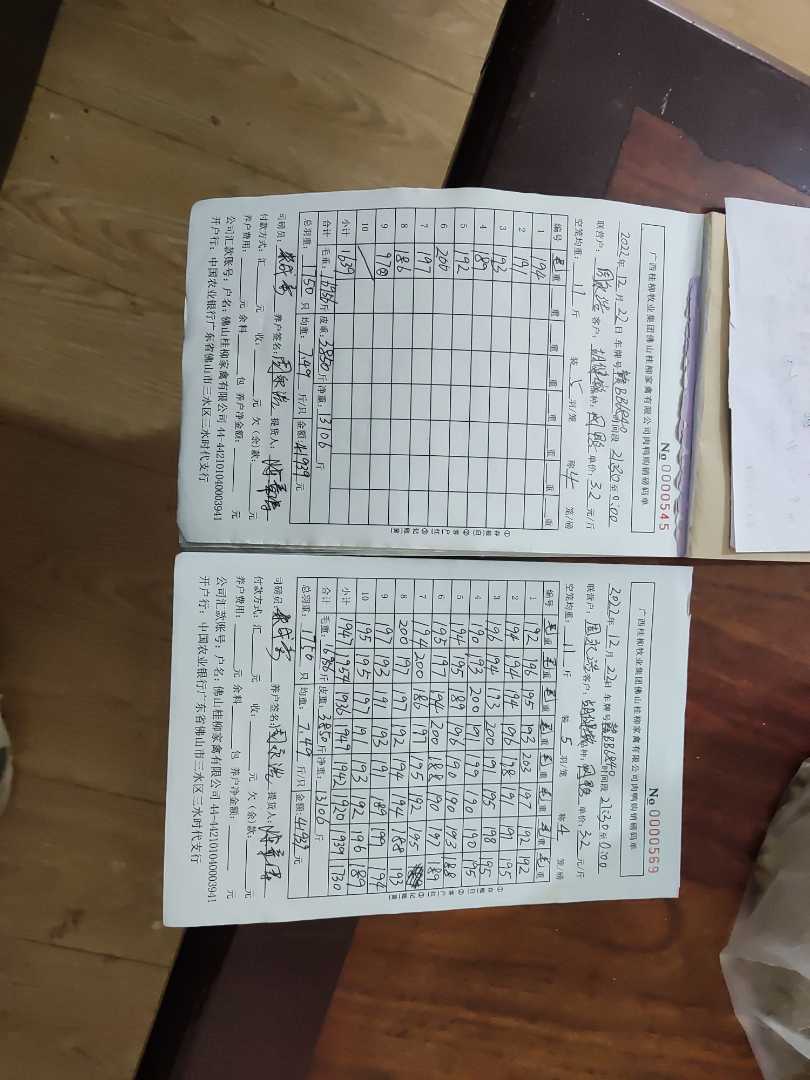 广西桂柳牧业集团佛山桂柳家禽有限公司肉鸭购销磅码单
No 0000545
2022年 12月 22日 车牌号 赣BB6840 时间段 21:30 至 0:00
联营户: 周永浩 客户: 胡保敏 品种: 单价: 3.2 元/斤
空笼均重: 11 斤 装 5 羽/笼 称 4 笼/磅
编号 毛重 重 重 重 重 重 重 重
1 194
2 191
3 193
4 189
5 192
6 200
7 197
8 186
9 97②
10
小计 1639
合计 毛重: 16956 斤 皮重: 3850 斤 净重: 13106 斤
总羽重: 1750 只 均重: 7.49 斤/只 金额: 41939 元
司磅员: 养户签名: 周永浩 提货人:
付款方式: 汇 收: 元 欠(余)款: 元
养户费用: 元 余料 包 养户净金额: 元
公司汇款账号: 户名: 佛山桂柳家禽有限公司 44-442101040003941
开户行: 中国农业银行广东省佛山市三水区三水时代支行
①存根(白) ②客户(红) ③记账(黄)
广西桂柳牧业集团佛山桂柳家禽有限公司肉鸭购销磅码单
No 0000569
2022年 12月 22日 车牌号 赣BB6840 时间段 21:30 至 0:00
联营户: 周永浩 客户: 胡保敏 品种: 单价: 3.2 元/斤
空笼均重: 11 斤 装 5 羽/笼 称 4 笼/磅
编号 毛重 毛重 毛重 毛重 毛重 毛重 毛重 毛重
1 192 196 195 193 203 197 192 192
2 194 194 194 196 178 191 191 195
3 196 194 193 200 199 195 198 195
4 190 193 200 191 199 190 190 195
5 194 195 189 196 190 190 193 188
6 195 197 194 200 188 190 197 189
7 194 200 186 197 195 192 195
8 200 197 197 192 194 194 188 193
9 197 193 191 193 191 189 199 194
10 195 195 197 191 193 192 196 189
小计 1947 1954 1936 1949 1942 1920 1939 1730
合计 毛重: 16956 斤 皮重: 3850 斤 净重: 13106 斤
总羽重: 1750 只 均重: 7.49 斤/只 金额: 41939 元
司磅员: 养户签名: 周永浩 提货人:
付款方式: 汇 收: 元 欠(余)款: 元
养户费用: 元 余料 包 养户净金额: 元
公司汇款账号: 户名: 佛山桂柳家禽有限公司 44-442101040003941
开户行: 中国农业银行广东省佛山市三水区三水时代支行
①存根(白) ②客户(红) ③记账(黄)